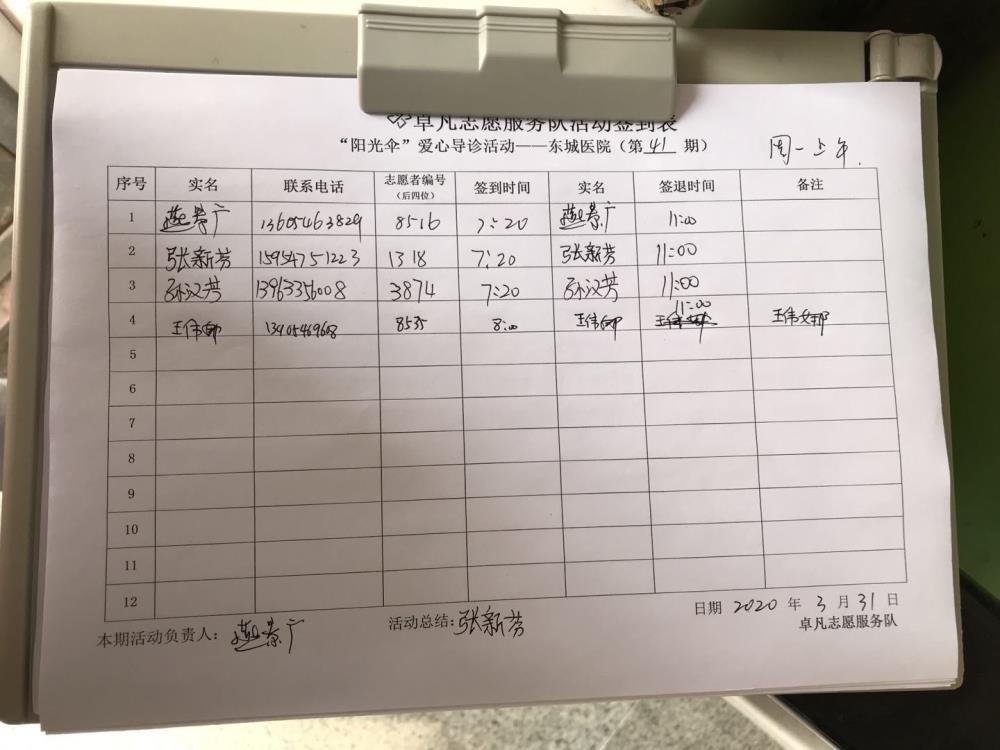 卓凡志愿服务队活动签到表
“阳光伞”爱心导诊活动——东城医院（第 41 期）
周一上午.
序号 实名 联系电话 志愿者编号（后四位） 签到时间 实名 签退时间 备注
1 燕景广 13605463829 8516 7:20 燕景广 11:00
2 张新芳 15954751223 1318 7:20 张新芳 11:00
3 孙汉芳 13963356008 3874 7:20 孙汉芳 11:00
4 王伟 13905469608 8535 8:00 王伟 11:00 王伟
5
6
7
8
9
10
11
12
日期 2020 年 3 月 31 日
本期活动负责人：燕景广 活动总结：张新芳
卓凡志愿服务队